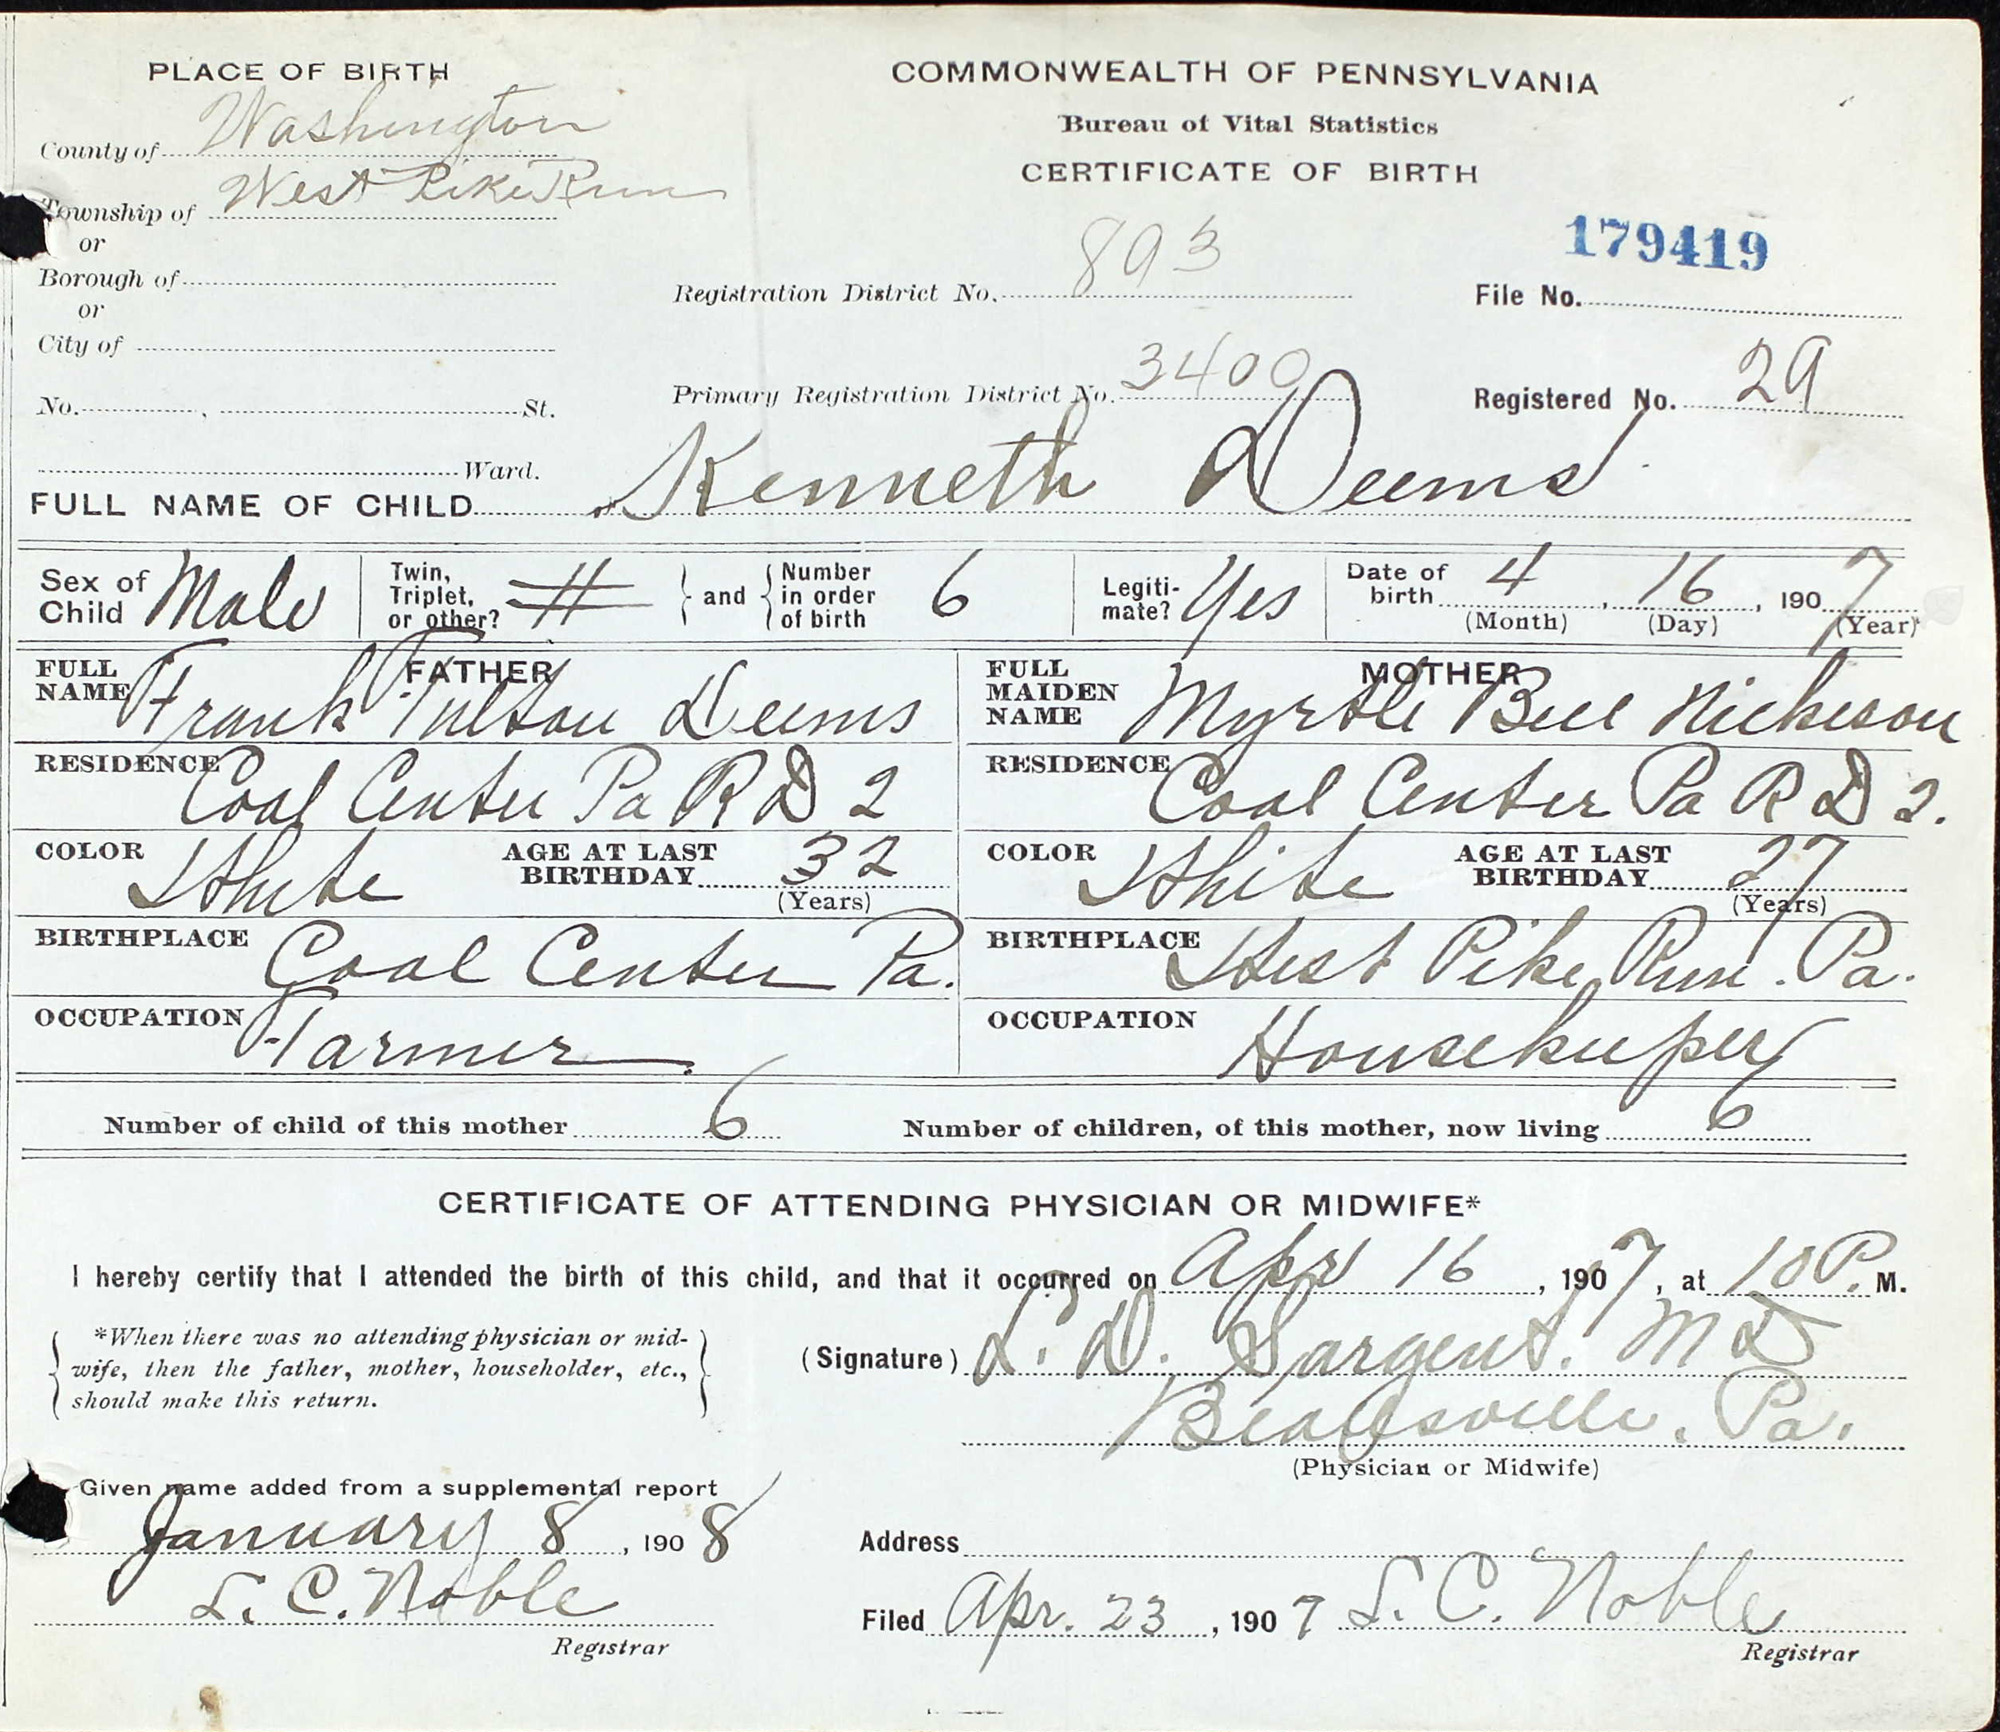 PLACE OF BIRTH
County of Washington
Township of West Pike Run
or
Borough of
or
City of
No. , St.
Ward.
COMMONWEALTH OF PENNSYLVANIA
Bureau of Vital Statistics
CERTIFICATE OF BIRTH
Registration District No. 893
179419
File No.
Primary Registration District No. 3400
Registered No. 29
FULL NAME OF CHILD Kenneth Deems
Sex of Child Male
Twin, Triplet, or other? and Number in order of birth 6
Legitimate? Yes
Date of birth 4, 16, 1907
(Month) (Day) (Year)
FATHER
FULL NAME Frank Fulton Deems
RESIDENCE Coal Center Pa R D 2
COLOR White AGE AT LAST BIRTHDAY 32
(Years)
BIRTHPLACE Coal Center Pa.
OCCUPATION Farmer
MOTHER
FULL MAIDEN NAME Myrtle Bell Nickeson
RESIDENCE Coal Center Pa R D 2.
COLOR White AGE AT LAST BIRTHDAY 27
(Years)
BIRTHPLACE West Pike Run. Pa.
OCCUPATION Housekeeper
Number of child of this mother 6 Number of children, of this mother, now living 6
CERTIFICATE OF ATTENDING PHYSICIAN OR MIDWIFE*
I hereby certify that I attended the birth of this child, and that it occurred on Apr 16, 1907, at 10 P. M.
*When there was no attending physician or mid-
wife, then the father, mother, householder, etc.,
should make this return.
(Signature) L. D. Sargent. M D
Beallsville. Pa.
(Physician or Midwife)
Given name added from a supplemental report
January 8, 1908
S. C. Noble
Registrar
Address
Filed Apr. 23, 1907 S. C. Noble
Registrar